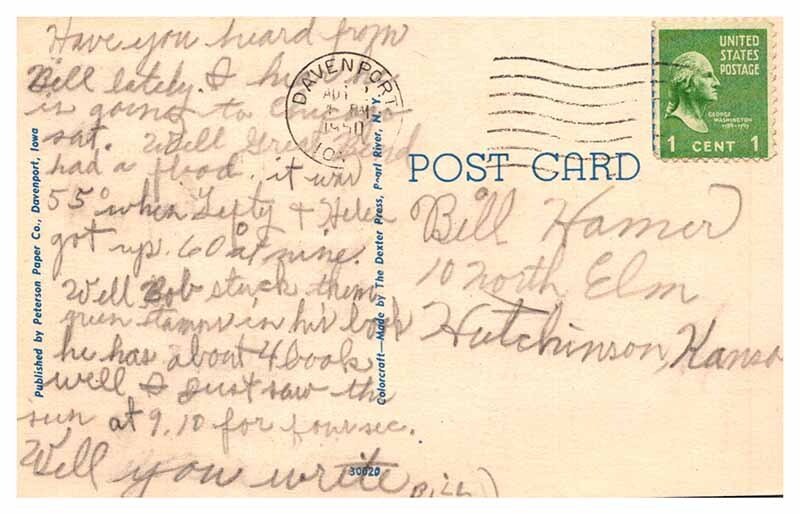 Have you heard from
Bill lately. I he
is going to Chicago
sat. Well Great Bend
had a flood. it was
55° when Lefty & Helen
got up. 60° at nine.
Well Bob stuck them
green stamps in his book
he has about 4 book
well I just saw the
sun at 9,10 for four sec.
Will you write Bill)
Published by Peterson Paper Co., Davenport, Iowa
Colorcraft—Made by The Dexter Press, Pearl River, N. Y.
30020
DAVENPORT
1950
IOWA
UNITED
STATES
POSTAGE
GEORGE
WASHINGTON
1 CENT 1
POST CARD
Bill Hamer
10 North Elm
Hutchinson, Kansa